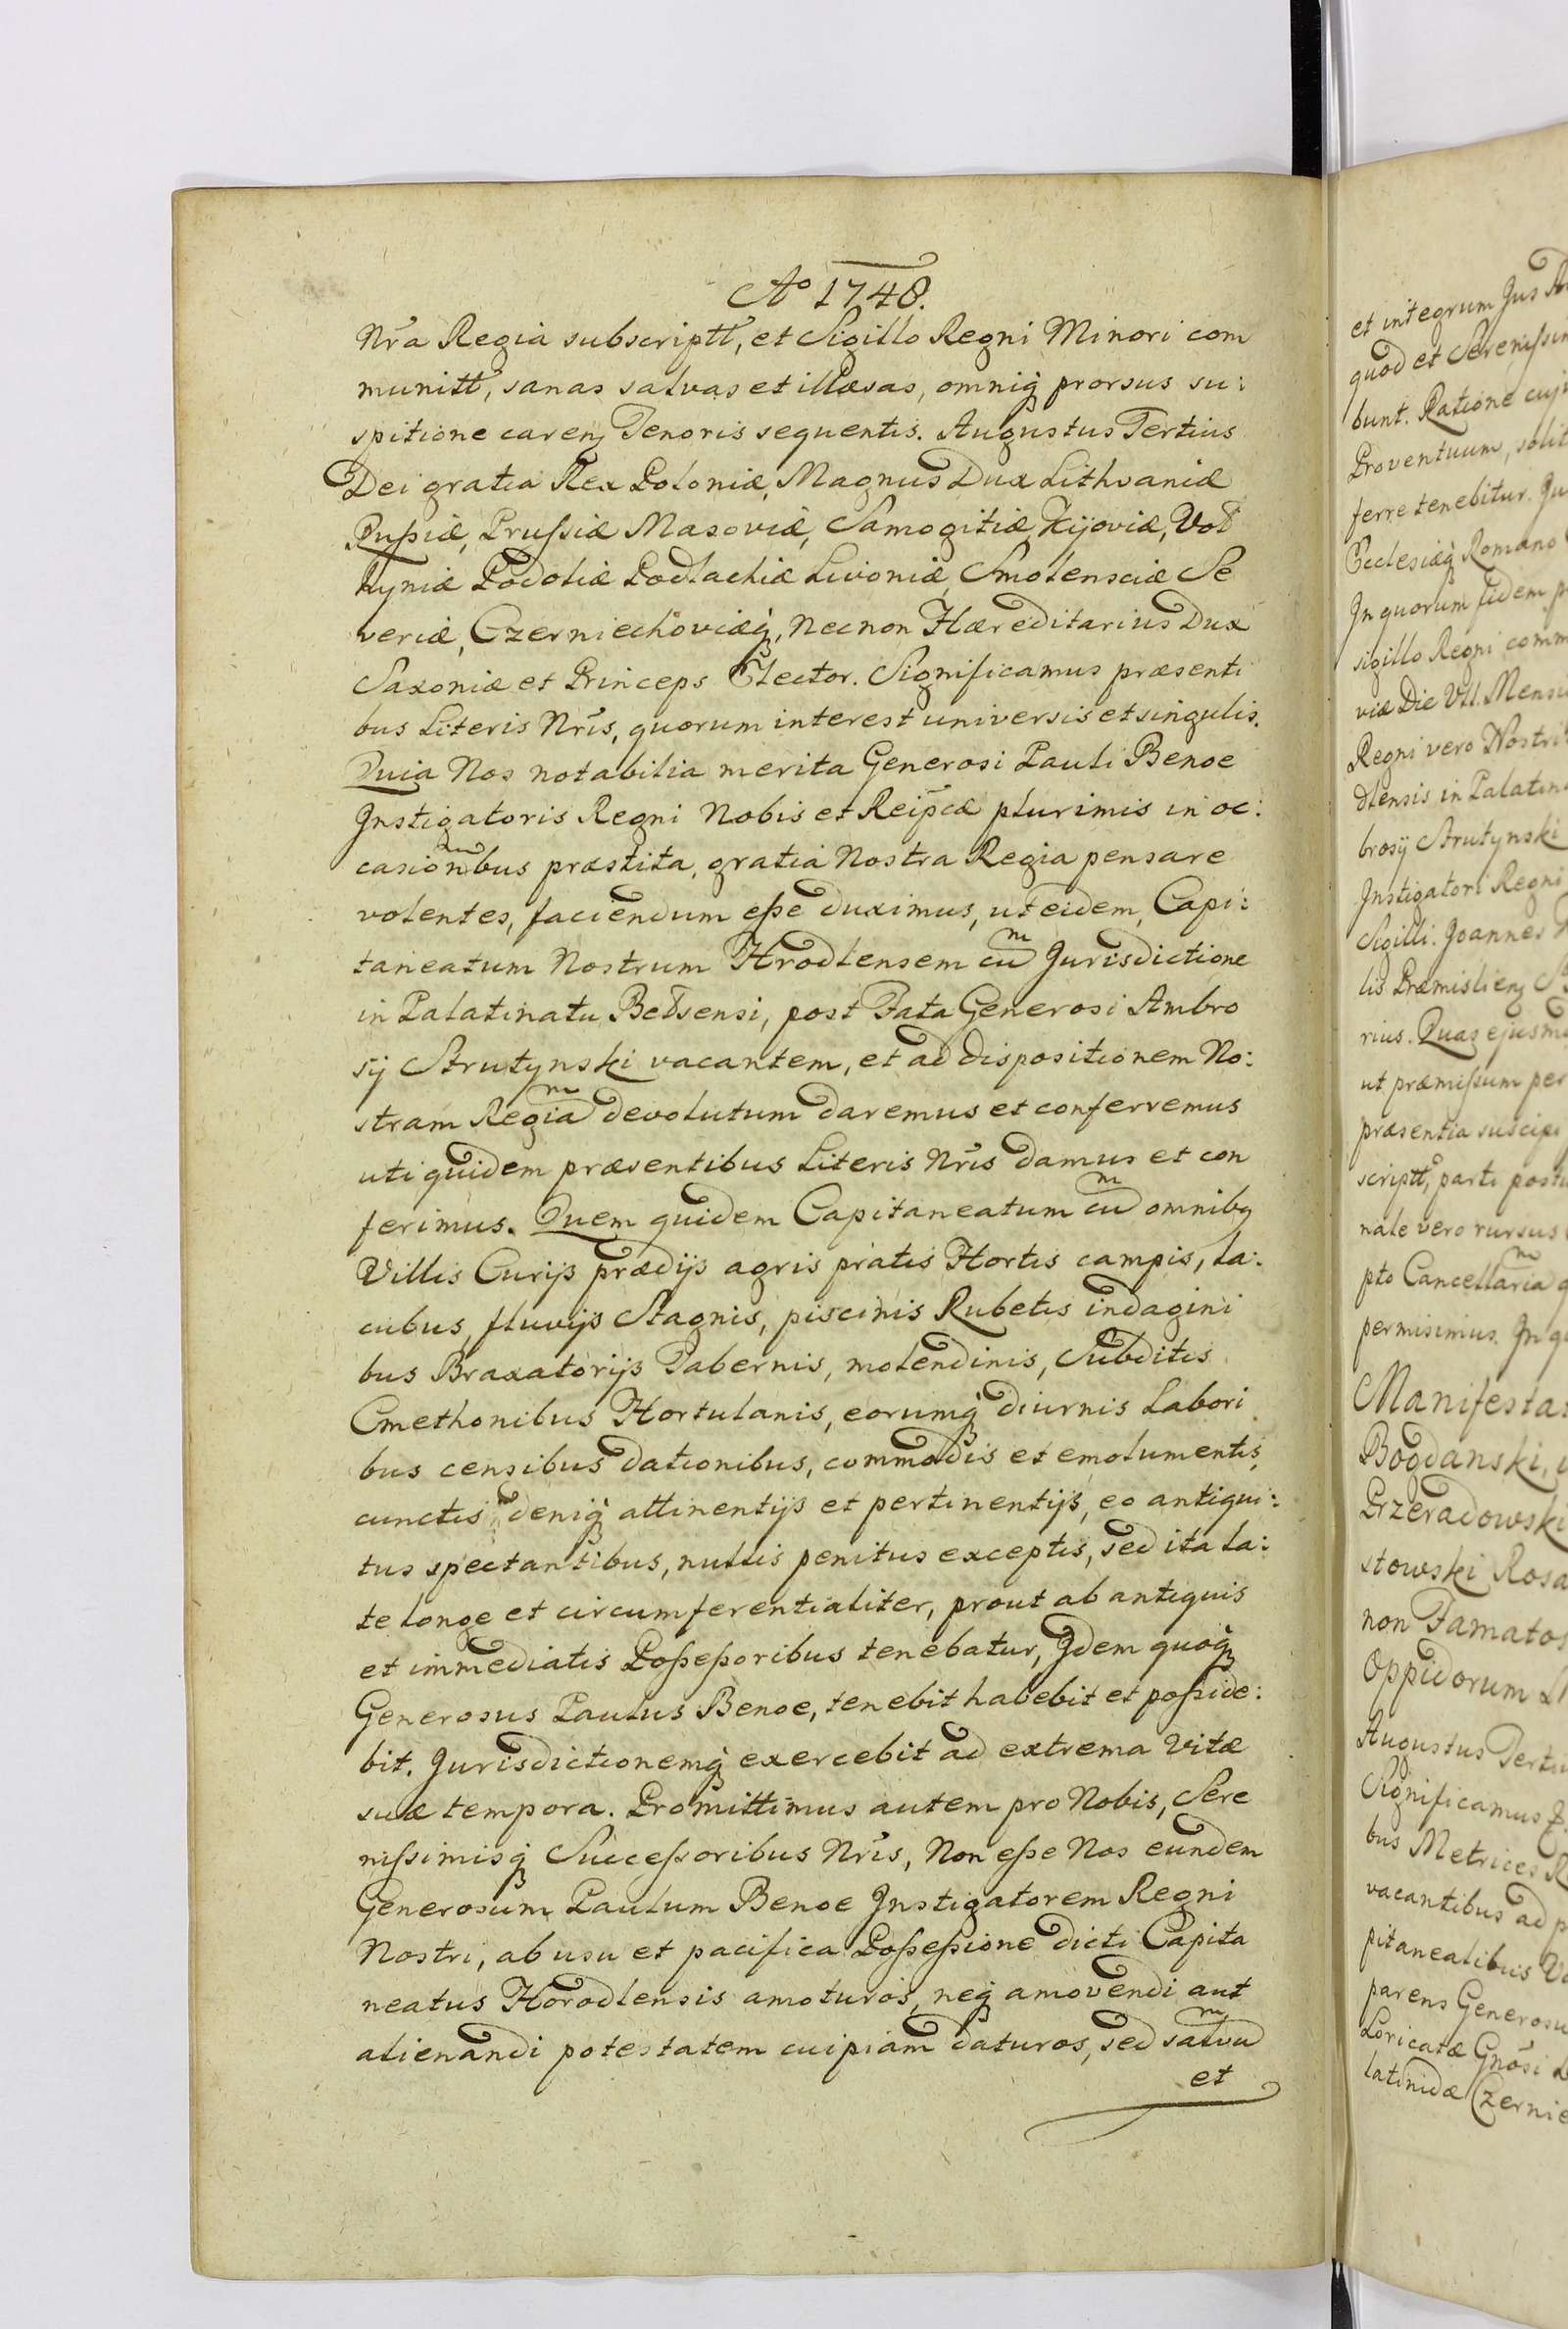 Ao 1748.
Nr̃a Regia subscriptt, et Sigillo Regni Minori com
munitt, sanas salvas et illæsas, omniq; prorsus su:
spitione caren; Tenoris sequentis. Augustus Tertius
Dei gratia Rex Poloniæ, Magnus Dux Lithvaniæ
Rußiæ, Prußiæ Masoviæ, Samogitiæ, Kijoviæ, Vol
hyniæ Podoliæ Podlachiæ Livoniæ, Smolensciæ Se
veriæ, Czerniechoviæq;, necnon Hæreditarius Dux
Saxoniæ et Princeps Elector. Significamus præsenti
bus Literis Nr̃is, quorum interest universis et singulis.
Quia Nos notabilia merita Generosi Pauli Benoe
Instigatoris Regni Nobis et Reip̃cæ plurimis in oc:
casionibus præstita, gratia Nostra Regia pensare
volentes, faciendum eße duximus, ut eidem, Capi:
taneatum Nostrum Hrodlensem cum Jurisdictione
in Palatinatu Belsensi, post Fata Generosi Ambro
sij Strutynski vacantem, et ad dispositionem No:
stram Regiam devolutum daremus et conferremus
uti quidem præsentibus Literis Nr̃is damus et con
ferimus. Quem quidem Capitaneatum cum omnibq
Villis Curijs prædijs agris pratis Hortis campis, la:
cubus, fluvijs Stagnis, piscinis Rubetis indagini
bus Braxatorijs Tabernis, molendinis, Subditis
Cmethonibus Hortulanis, eorumq; diurnis Labori
bus censibus dationibus, commodis et emolumentis,
cunctis deniq; attinentijs et pertinentijs, eo antiqui:
tus spectantibus, nullis penitus exceptis, sed ita la:
te longe et circumferentialiter, prout ab antiquis
et immediatis Poßeßoribus tenebatur, Idem quoq;
Generosus Paulus Benoe, tenebit habebit et poßide:
bit. Jurisdictionemq; exercebit ad extrema Vitæ
suæ tempora. Promittimus autem pro Nobis, Sere
nißimisq; Succeßoribus Nr̃is, Non eße Nos eundem
Generosum Paulum Benoe Instigatorem Regni
Nostri, ab usu et pacifica Poßeßione dicti Capita
neatus Horodlensis amoturos, neq; amovendi aut
alienandi potestatem cuipiam daturos, sed salvum
et
et integrum Jus
quod et Serenißim
bunt. Ratione cuj
Proventuum, solit
ferre tenebitur. Ju
Ecclesiæq; Romano
In quorum fidem p
sigillo Regni comm
viæ Die VII. Mensi
Regni vero Nostri
dlensis in Palatin
brosij Strutynski
Instigatori Regni
Sigilli. Joannes
lis Præmislien;
rius. Quas ejusm
ut præmißum per
præsentia suscipi
scriptt, parti post
nale vero rursus
pto Cancellariam
permisimus. In q
Manifesta
Bogdanski,
Przeradowski
stowski Rosa
non Famatos
Oppidorum
Augustus Tertiu
Significamus
bus Metrices R
vacantibus ad p
pitanealibus V
parens Generosu
Loricatæ Gnõsi
latinidæ Czernie